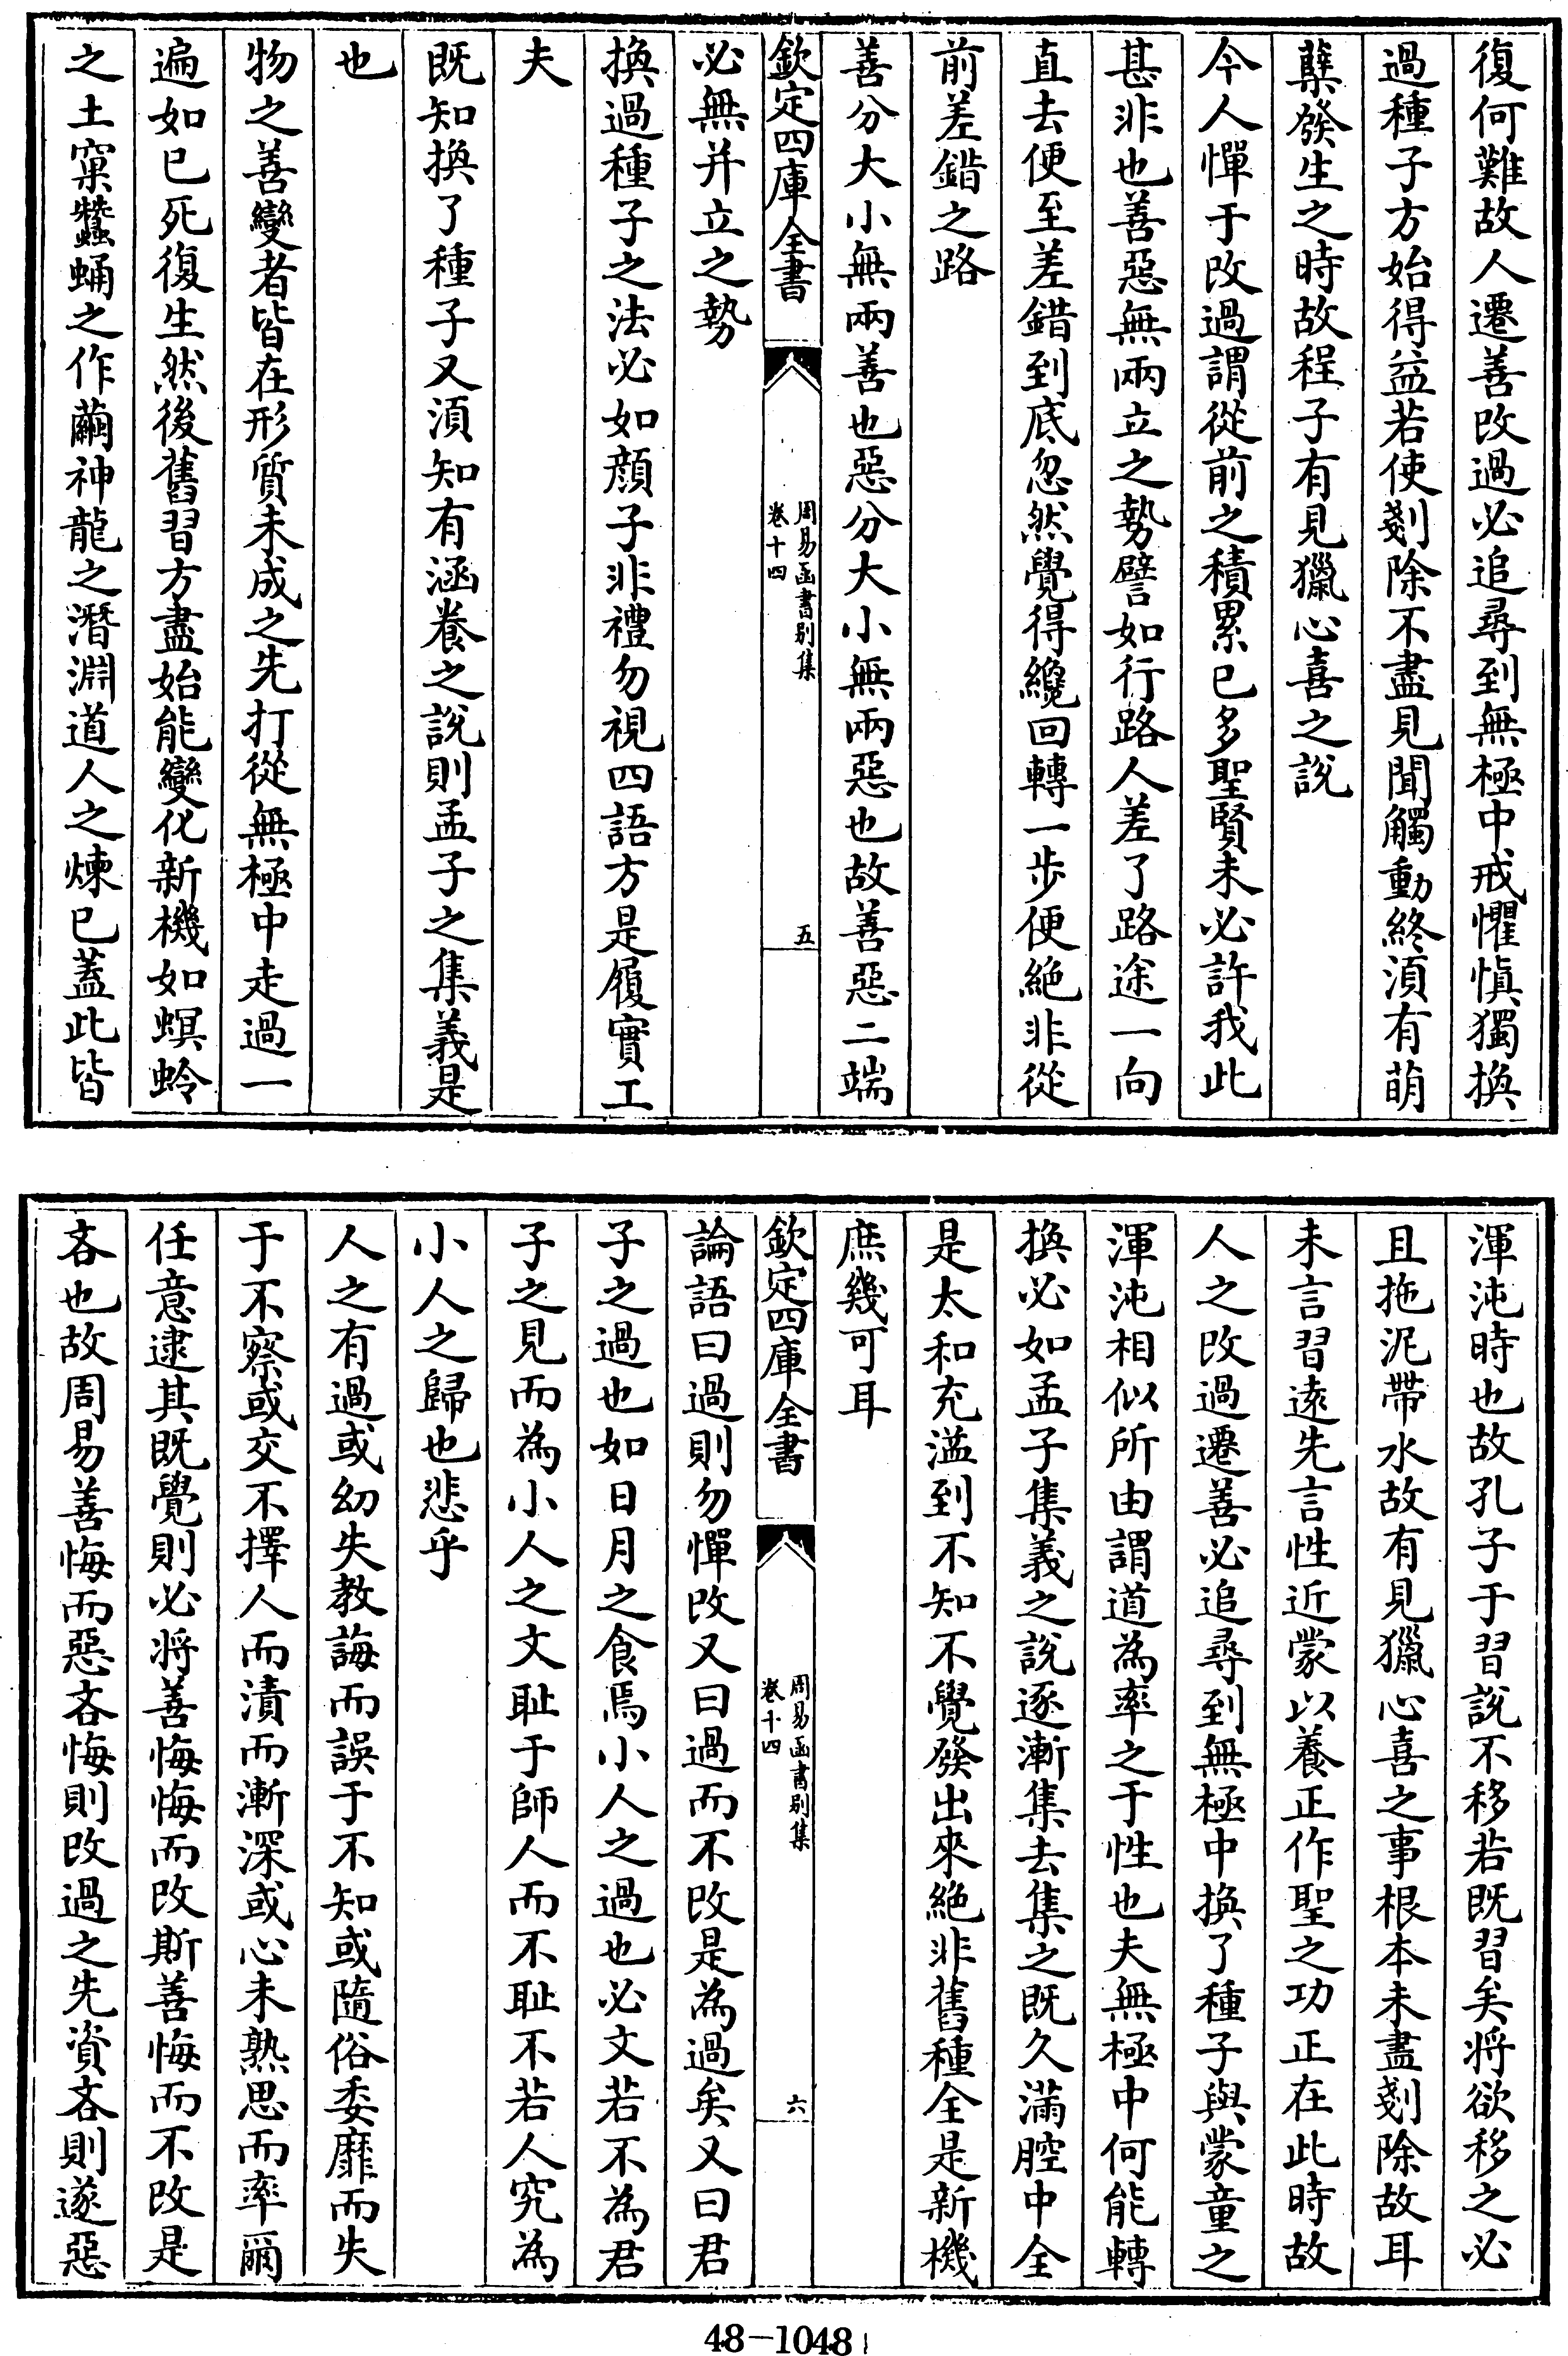 復何難故人遷善改過必追尋到無極中戒懼慎獨換
過種子方始得益若使剗除不盡見聞觸動終湏有萌
蘖發生之時故程子有見獵心喜之説
今人憚于改過謂從前之積累已多聖賢未必許我此
甚非也善惡無兩立之勢譬如行路人差了路途一向
直去便至差錯到底忽然覺得纔回轉一步便絶非從
前差錯之路
善分大小無兩善也惡分大小無兩惡也故善惡二端
欽定四庫全書
周易函書别集
卷十四
五
必無并立之勢
換過種子之法必如顔子非禮勿視四語方是履實工
夫
既知換了種子又湏知有涵養之説則孟子之集義是
也
物之善變者皆在形質未成之先打從無極中走過一
遍如已死復生然後舊習方盡始能變化新機如螟蛉
之土窠蠶蛹之作繭神龍之潛淵道人之煉已蓋此皆
渾沌時也故孔子于習説不移若既習矣將欲移之必
且拖泥帶水故有見獵心喜之事根本未盡剗除故耳
未言習遠先言性近蒙以養正作聖之功正在此時故
人之改過遷善必追尋到無極中換了種子與蒙童之
渾沌相似所由謂道為率之于性也夫無極中何能轉
換必如孟子集義之説逐漸集去集之既久滿腔中全
是太和充溢到不知不覺發出來絶非舊種全是新機
庶幾可耳
欽定四庫全書
周易函書别集
卷十四
六
論語曰過則勿憚改又曰過而不改是為過矣又曰君
子之過也如日月之食焉小人之過也必文若不為君
子之見而為小人之文耻于師人而不耻不若人究為
小人之歸也悲乎
人之有過或幼失教誨而誤于不知或隨俗委靡而失
于不察或交不擇人而漬而漸深或心未熟思而率爾
任意逮其既覺則必將善悔悔而改斯善悔而不改是
吝也故周易善悔而惡吝悔則改過之先資吝則遂惡
48-1048